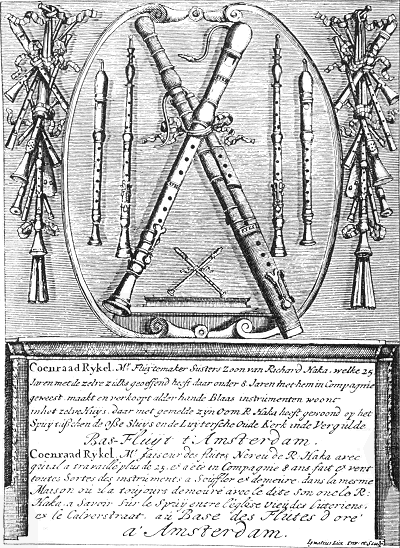 Coenraad Rykel. Mr. Fluytemaker Susters Zoon van Richard Haka, welke 25
Jaren met de zelve zulks geoeffend heeft daar onder 8 Jaren met hem in Compagnie
geweest. maakt en verkoopt alder hande Blaas instrumenten woont
in het zelve Huys, daar met gemelde zijn Oom R. Haka heeft gewoond op het
Spuy tusschen de Osse Sluys en de Luyterssche Oude Kerk inde Vergulde
Bas-Fluyt t'Amsterdam.
Coenraad Rykel Mr. faiseur des flutes Neveu de R. Haka avec
qui il a travaillé plus de 25. et a été in Compagnie 8 ans fait et vent
toutes Sortes des instruments a Souffler et demeure, dans la mesme
Maison ou il a toujours demeuré avec le dite Son oncle R:
Haka, a Savoir Sur le Spuy entre l'église vieu des Luteriens
et le Calverstraat. au Base des Flutes d'oré
a Amsterdam.